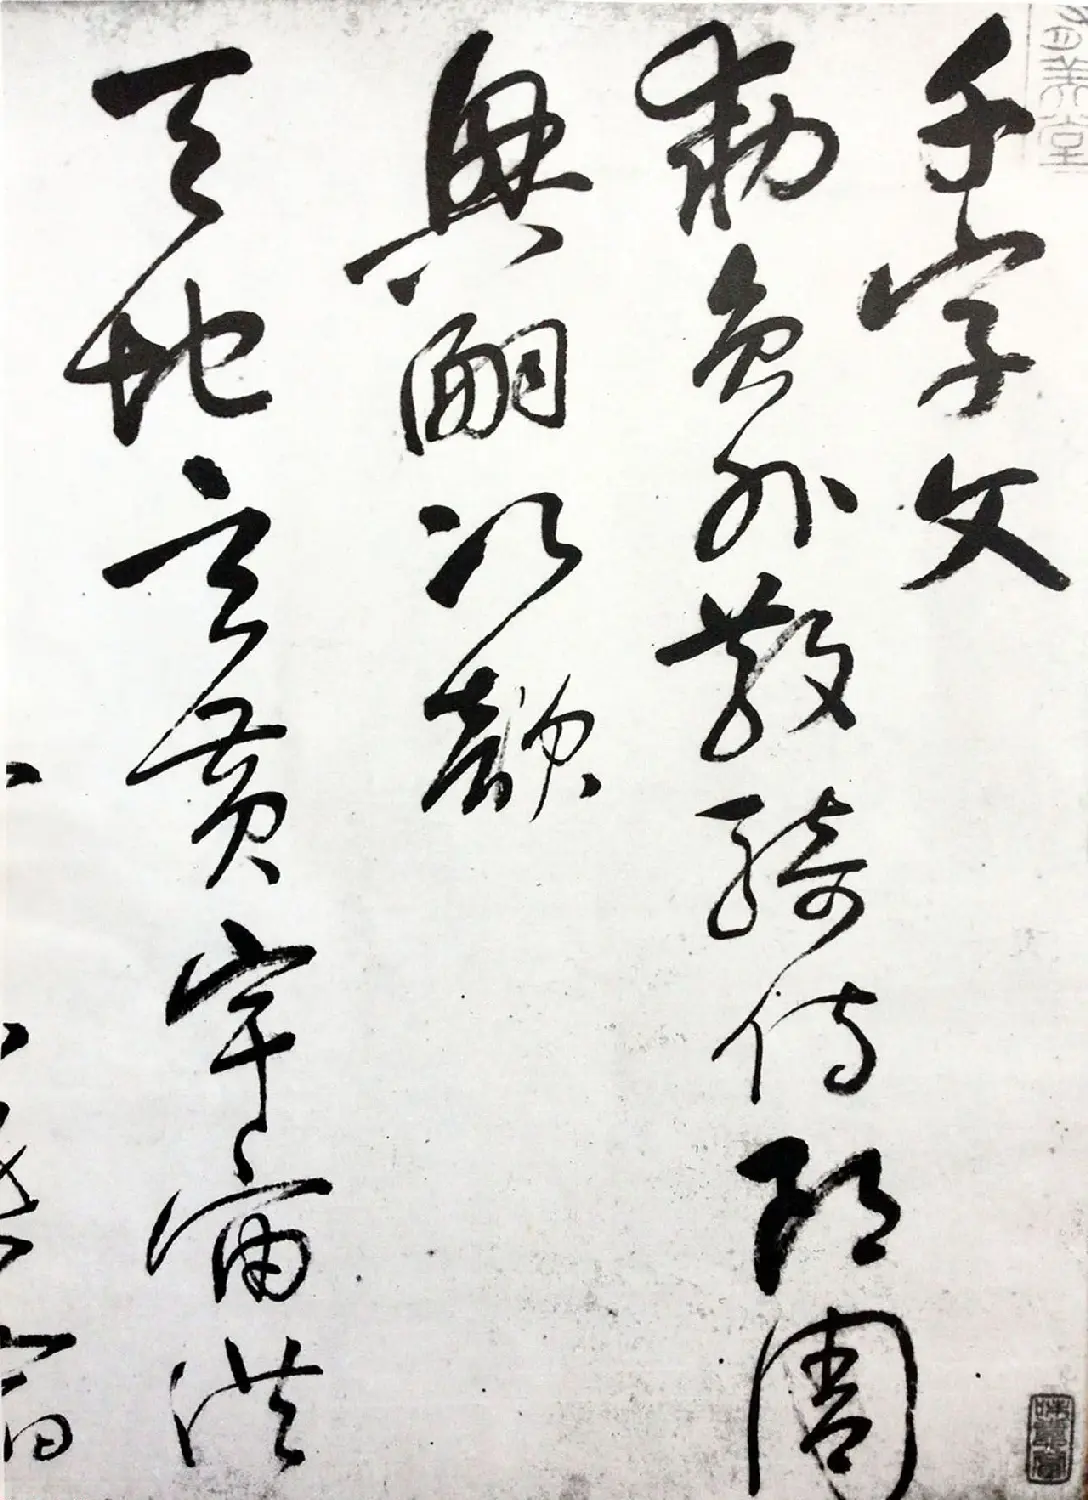 千字文
勅員外散騎侍郎周
興嗣次韻
天地玄黃宇宙洪